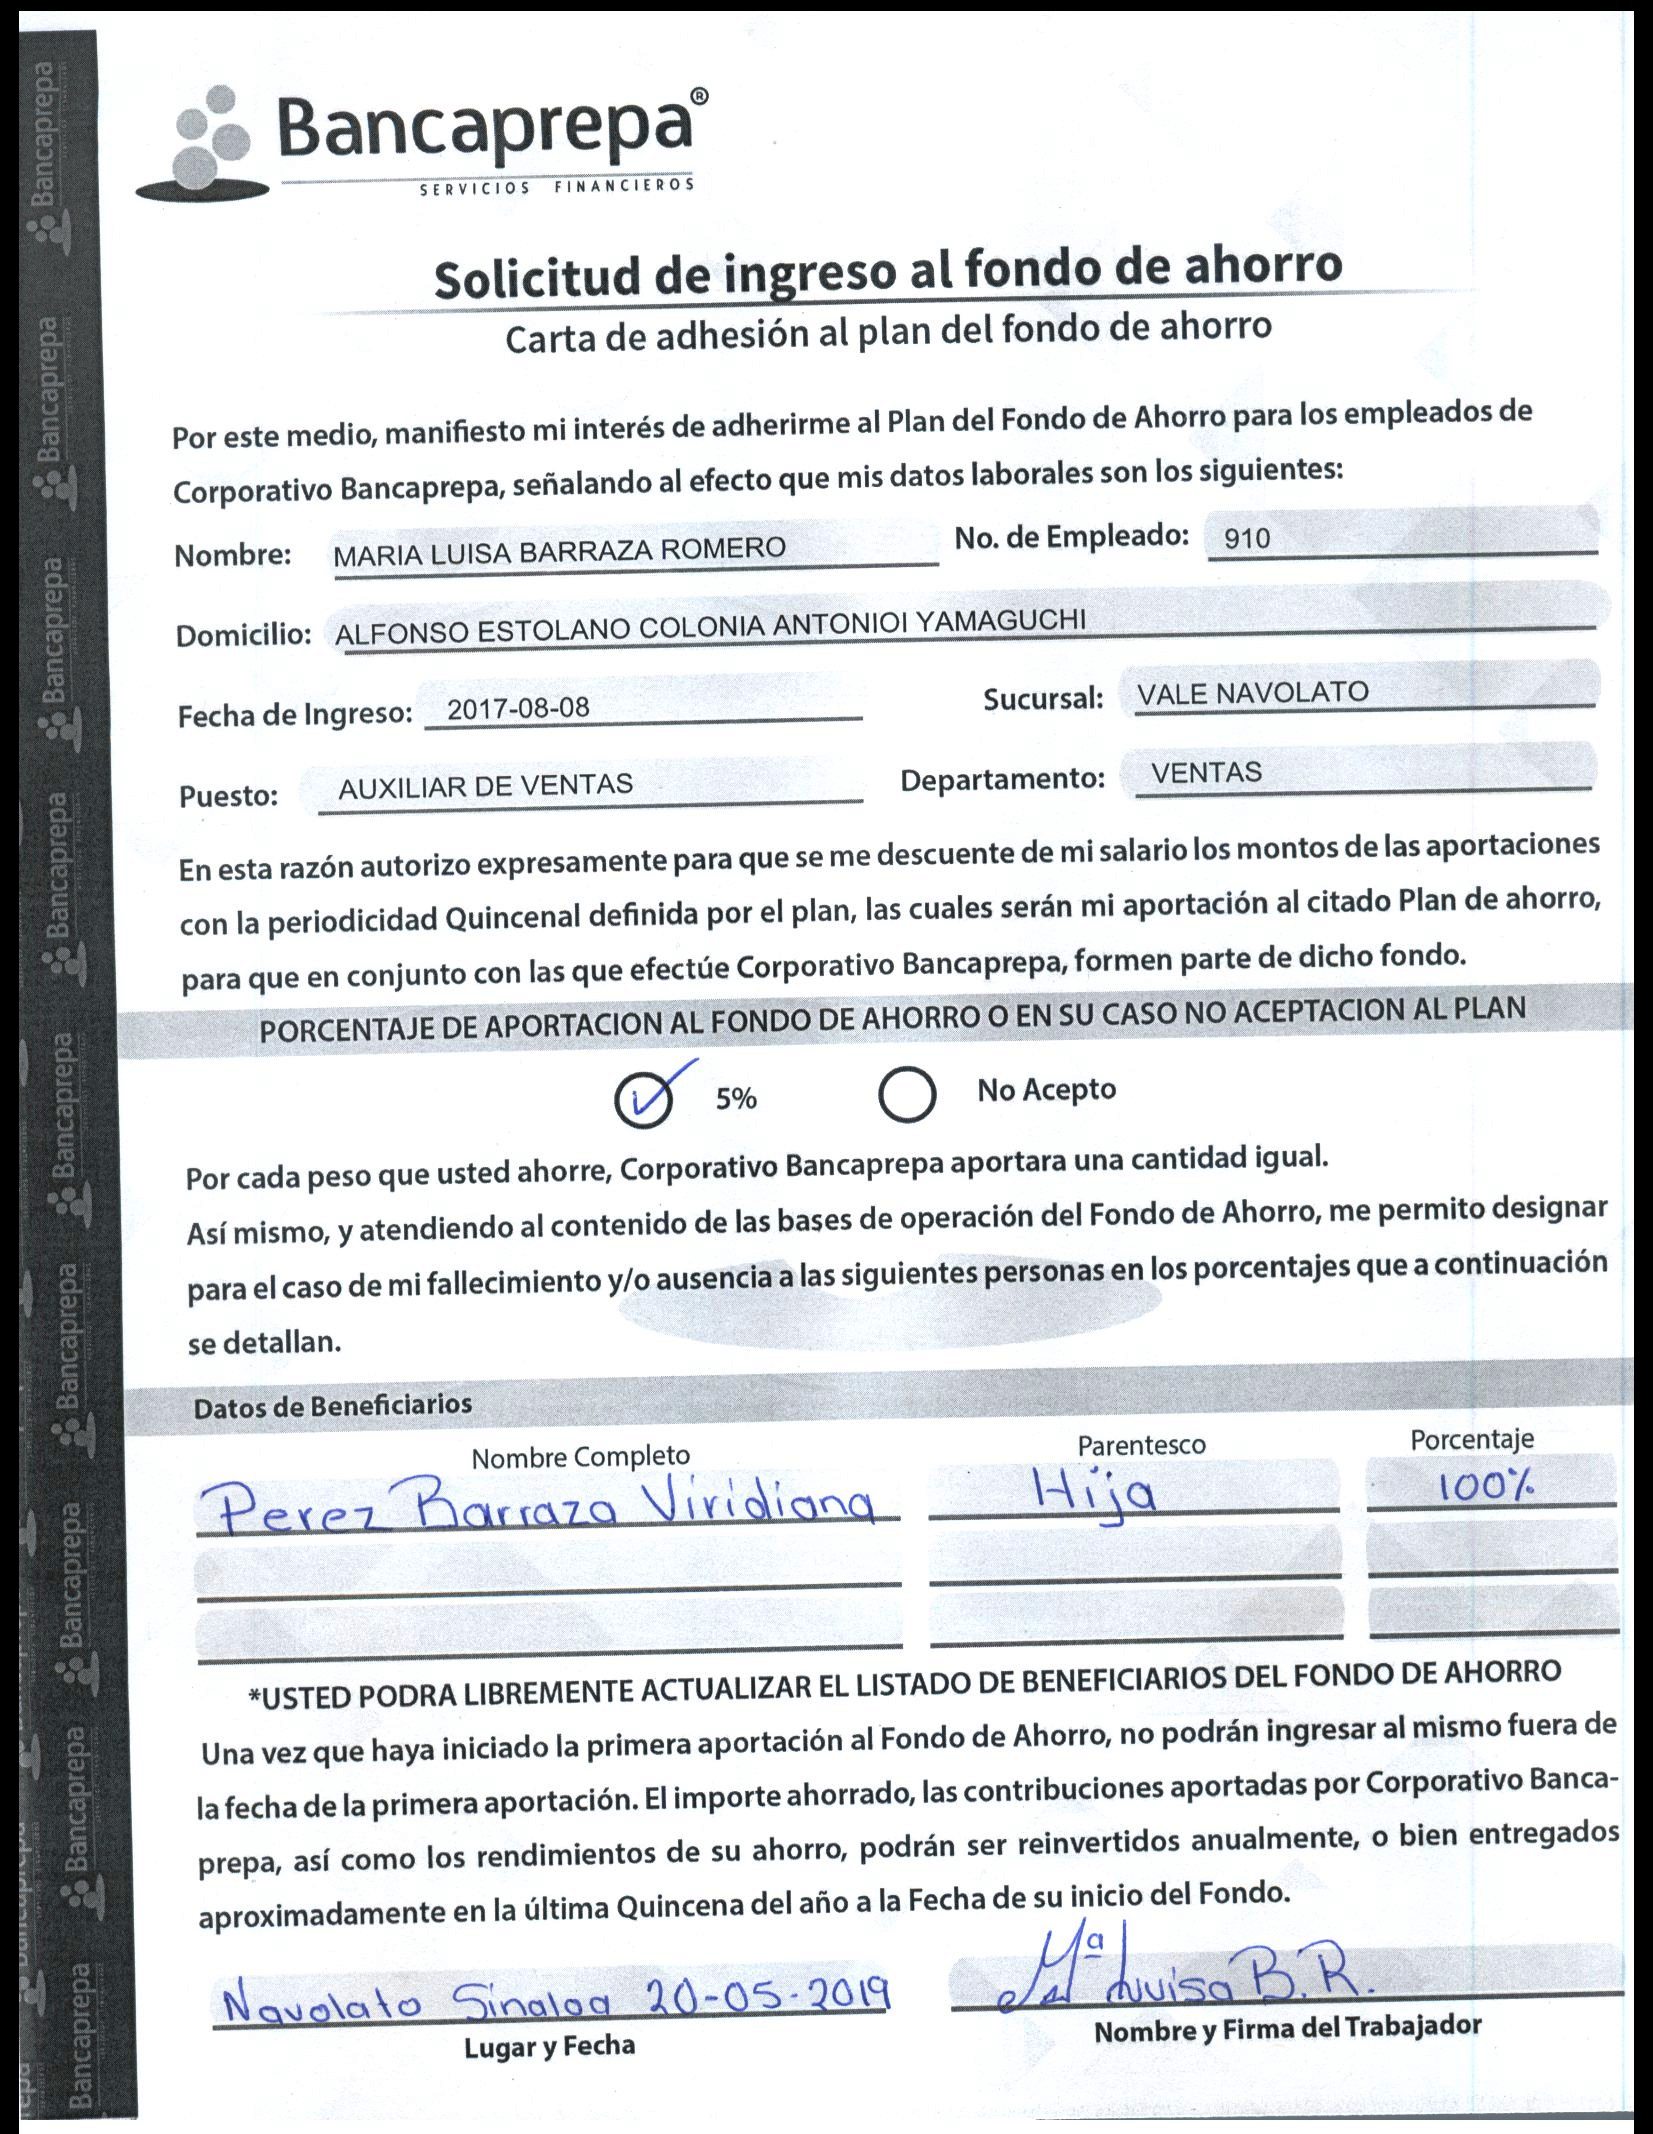 Bancaprepa®
SERVICIOS FINANCIEROS
Solicitud de ingreso al fondo de ahorro
Carta de adhesión al plan del fondo de ahorro
Por este medio, manifiesto mi interés de adherirme al Plan del Fondo de Ahorro para los empleados de
Corporativo Bancaprepa, señalando al efecto que mis datos laborales son los siguientes:
Nombre: MARIA LUISA BARRAZA ROMERO No. de Empleado: 910
Domicilio: ALFONSO ESTOLANO COLONIA ANTONIOI YAMAGUCHI
Fecha de Ingreso: 2017-08-08 Sucursal: VALE NAVOLATO
Puesto: AUXILIAR DE VENTAS Departamento: VENTAS
En esta razón autorizo expresamente para que se me descuente de mi salario los montos de las aportaciones
con la periodicidad Quincenal definida por el plan, las cuales serán mi aportación al citado Plan de ahorro,
para que en conjunto con las que efectúe Corporativo Bancaprepa, formen parte de dicho fondo.
PORCENTAJE DE APORTACION AL FONDO DE AHORRO O EN SU CASO NO ACEPTACION AL PLAN
5% No Acepto
Por cada peso que usted ahorre, Corporativo Bancaprepa aportara una cantidad igual.
Así mismo, y atendiendo al contenido de las bases de operación del Fondo de Ahorro, me permito designar
para el caso de mi fallecimiento y/o ausencia a las siguientes personas en los porcentajes que a continuación
se detallan.
Datos de Beneficiarios
Nombre Completo Parentesco Porcentaje
Perez Barraza Viridiana Hija 100%
*USTED PODRA LIBREMENTE ACTUALIZAR EL LISTADO DE BENEFICIARIOS DEL FONDO DE AHORRO
Una vez que haya iniciado la primera aportación al Fondo de Ahorro, no podrán ingresar al mismo fuera de
la fecha de la primera aportación. El importe ahorrado, las contribuciones aportadas por Corporativo Banca-
prepa, así como los rendimientos de su ahorro, podrán ser reinvertidos anualmente, o bien entregados
aproximadamente en la última Quincena del año a la Fecha de su inicio del Fondo.
Navolato Sinaloa 20-05-2019 Mª Luisa B.R.
Lugar y Fecha Nombre y Firma del Trabajador
Bancaprepa
Bancaprepa
Bancaprepa
Bancaprepa
Bancaprepa
Bancaprepa
Bancaprepa
Bancaprepa
Bancaprepa